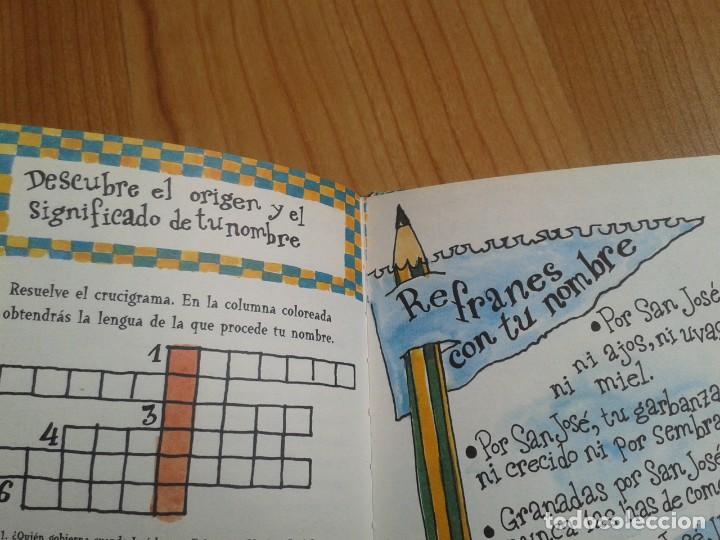 Descubre el origen y el
significado de tu nombre
Resuelve el crucigrama. En la columna coloreada
obtendrás la lengua de la que procede tu nombre.
1
3
4
6
1. ¿Quién gobierna cuando
Refranes
con tu nombre
•Por San José
ni ajos, ni uvas
ni miel.
•Por San José, tu garbanza
ni crecido ni por sembra
•Granadas por San José
nunca las has de come
todocoleccion
todocoleccion.net